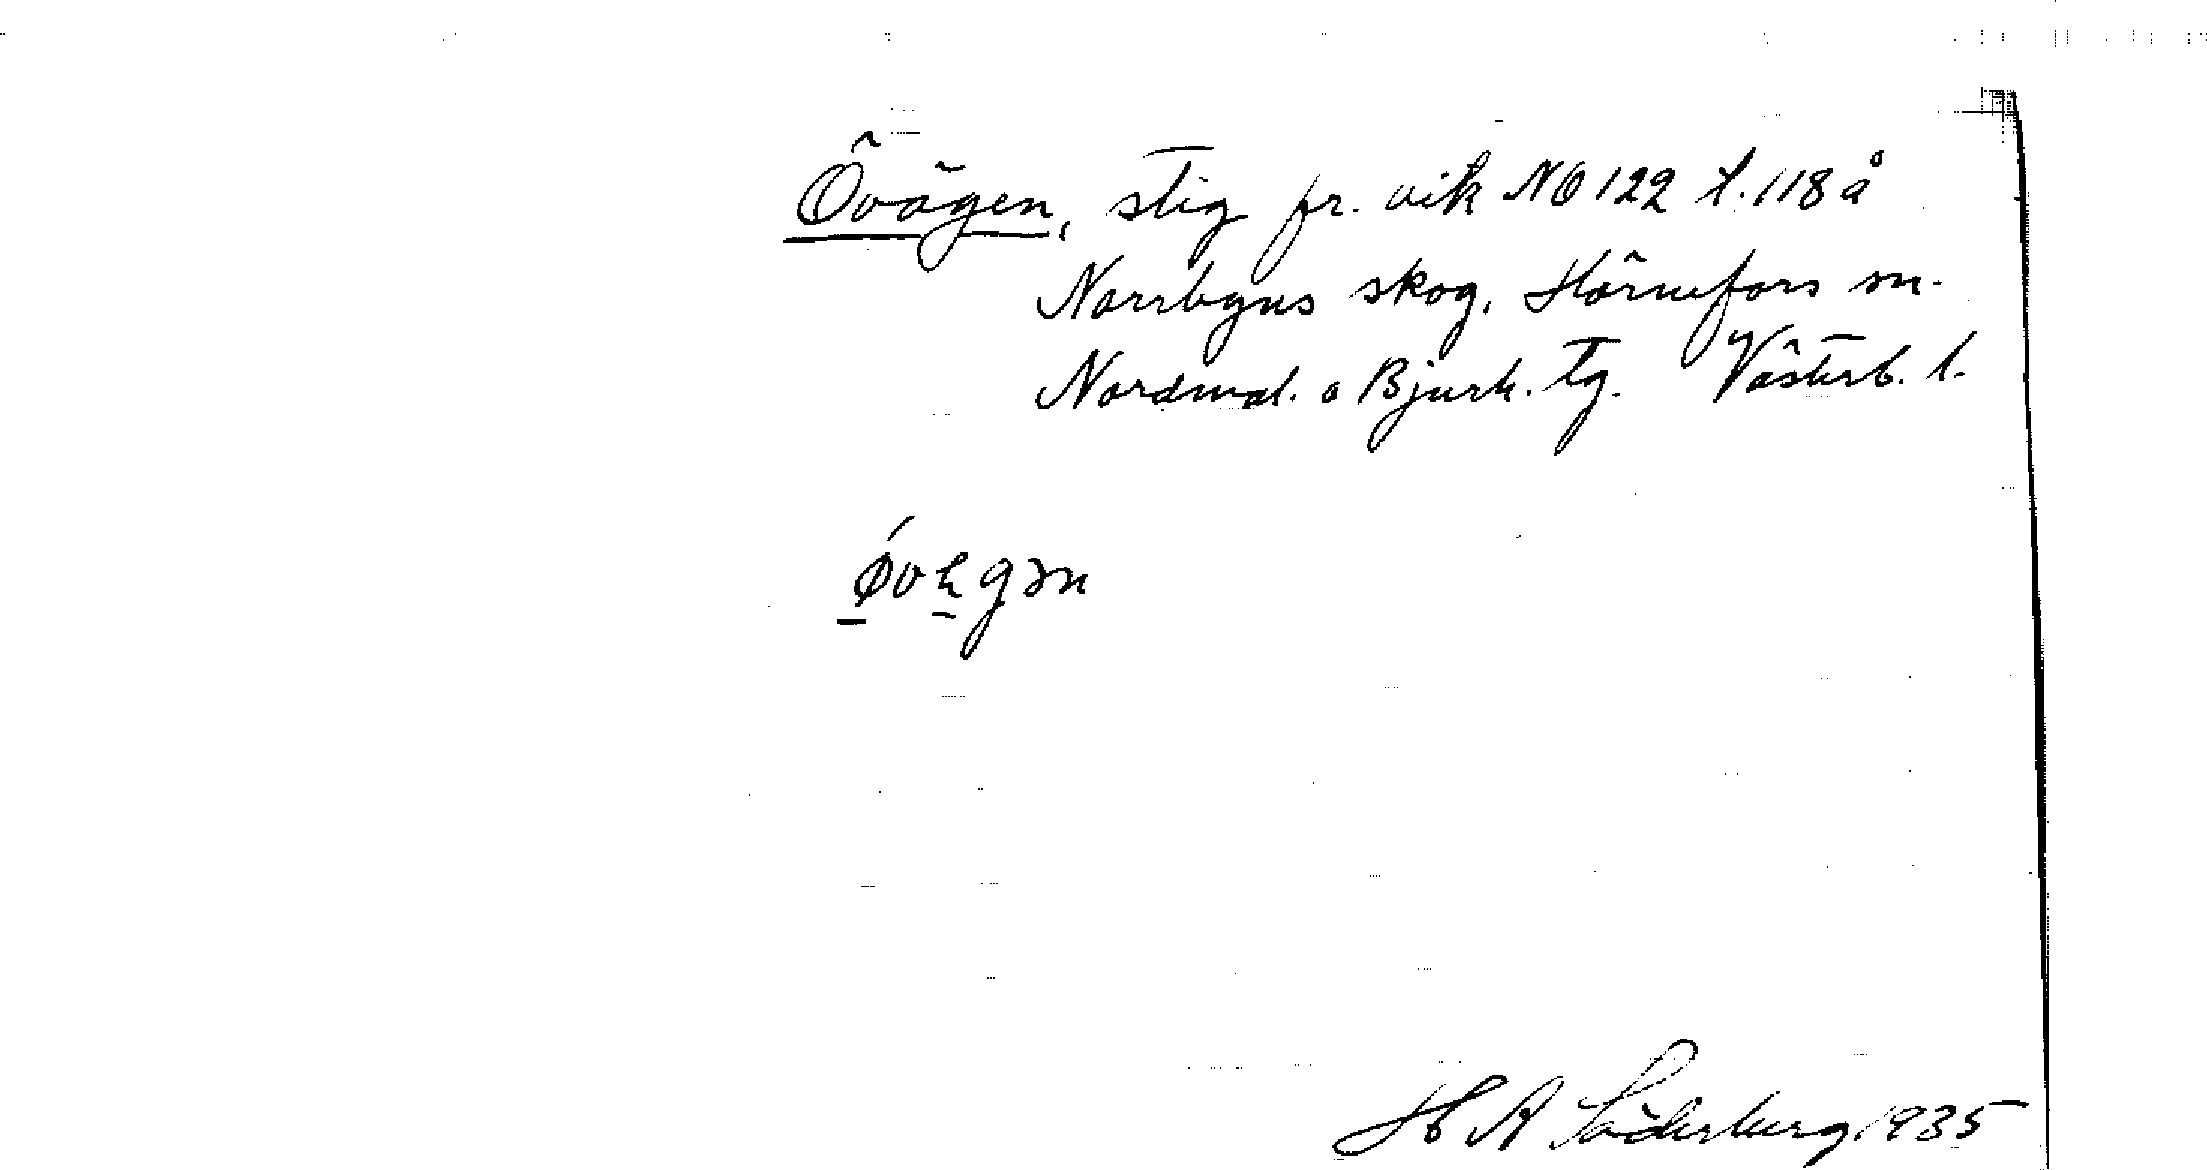 Övägen, stig fr. vik NO 122 t. 118 å
Norrbyns skog, Hörnefors sn.
Nordmal. o Bjurh. tg. Västerb. l.
H A Söderberg 1935